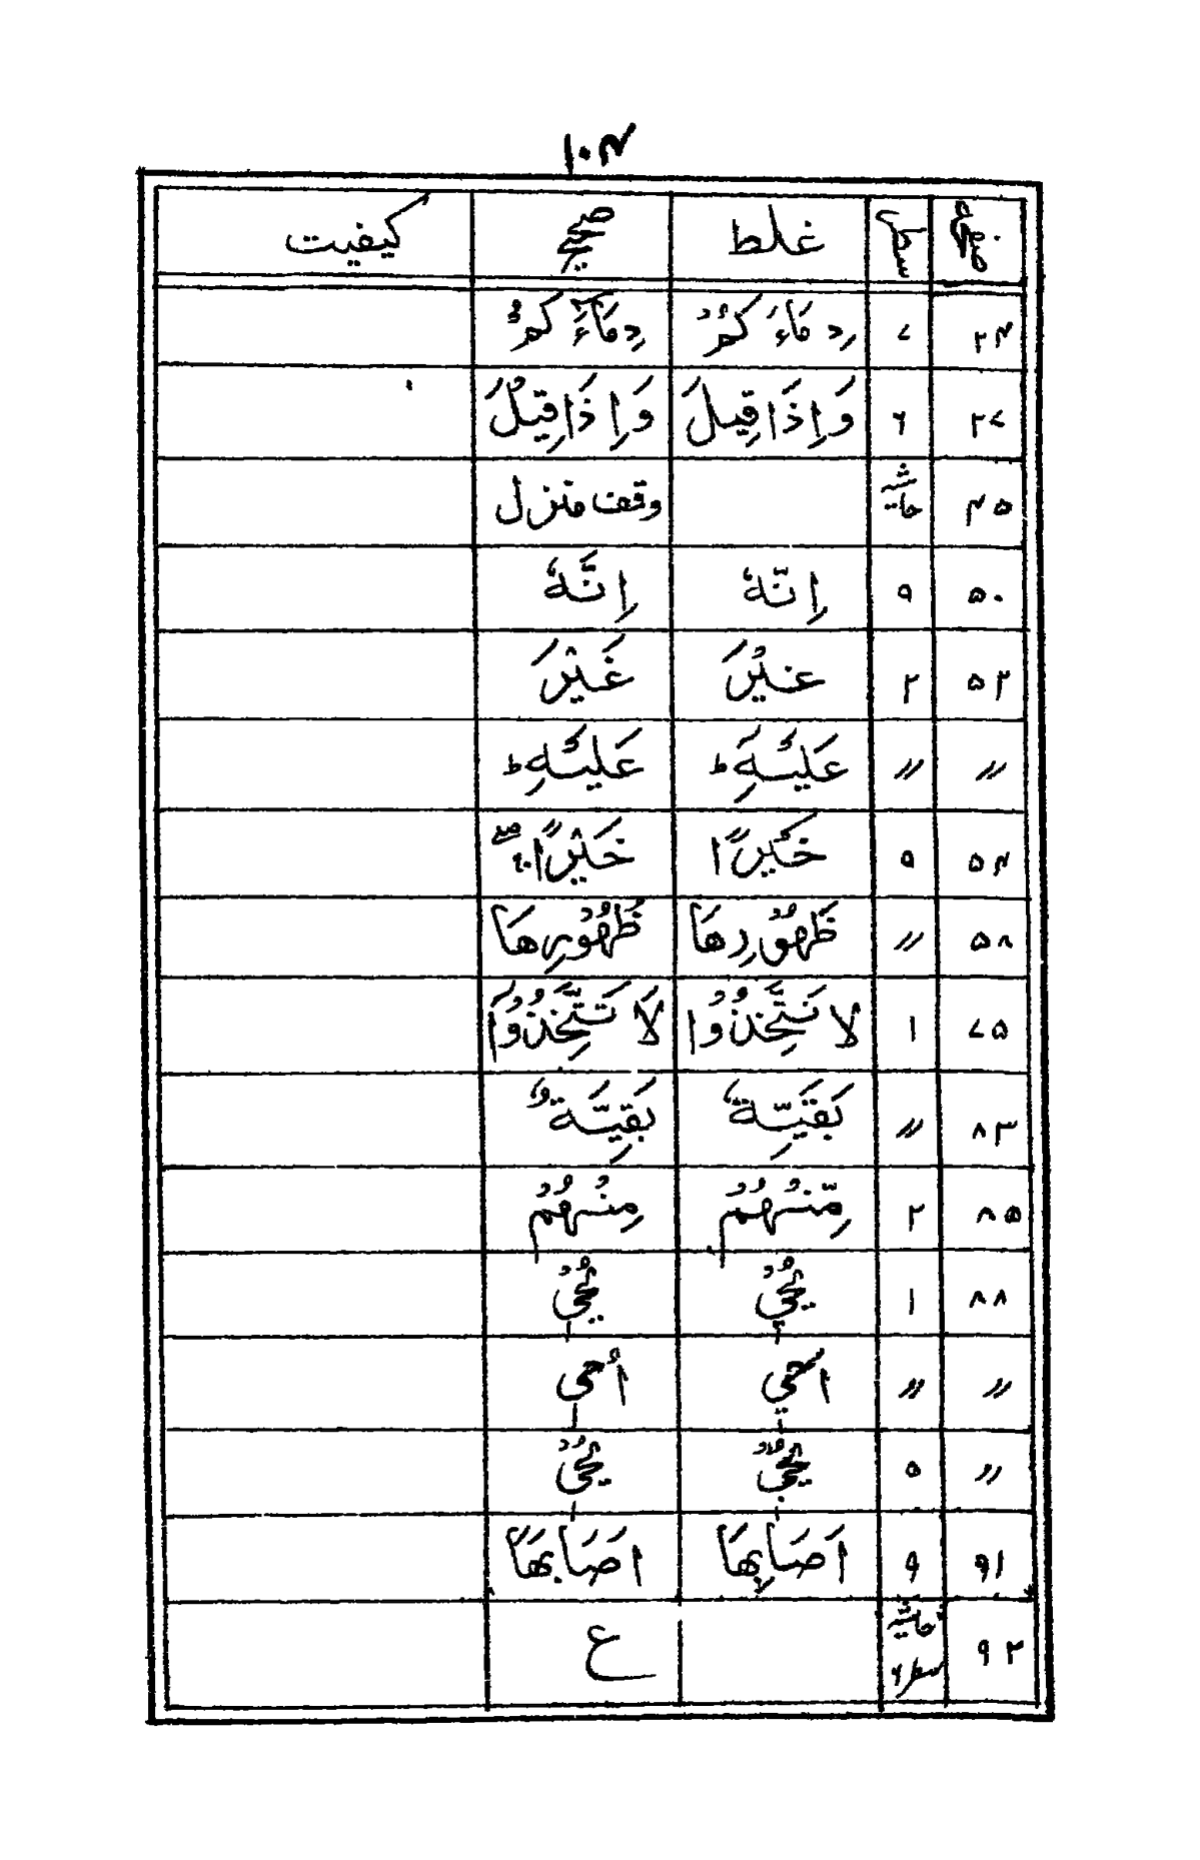 ۱۰۴
صفحہ سطر غلط صحیح کیفیت
۲۴ ۷ دِمَاءَ كُمْ دِمَآءَ كُمْ
۲۷ ۶ وَاِذَا قِيلَ وَاِذَا قِيْلَ
۴۵ حاشیہ وقف منزل
۵۰ ۹ اِنّهٗ اِنَّهٗ
۵۲ ۲ غيْرَ غَيْرَ
〃 〃 عَلَيْهَِ ط عَلَيْهِ ط
۵۴ ۹ خَيْرًا خَيْرًا
۵۸ 〃 ظَهُوْرِهَا ظُهُوْرِهَا
۷۵ ۱ لا تَتَّخِذُوْا لَا تَتَّخِذُوْا
۸۳ 〃 بَقَيِّةٌ بَقِيَّةٌ
۸۵ ۲ مِّنْهُمْ مِنْهُمْ
۸۸ ۱ يُحْيِ يُحْي
〃 〃 اُحْيِ اُحْي
〃 ۹ يُحْيِ يُحْي
۹۱ ۹ اَصَابِهَا اَصَابَهَا
۹۲ حاشیہ سطر ۶ ع